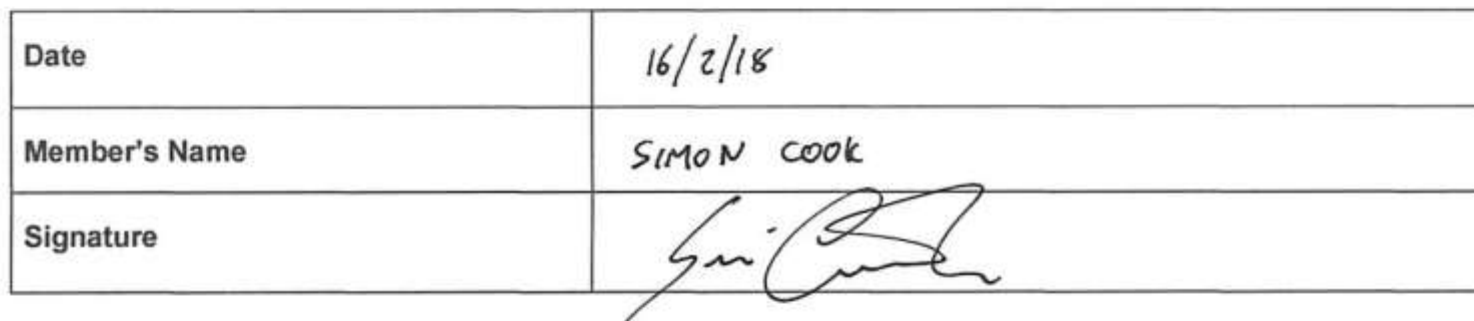 Date 16/2/18
Member's Name SIMON COOK
Signature